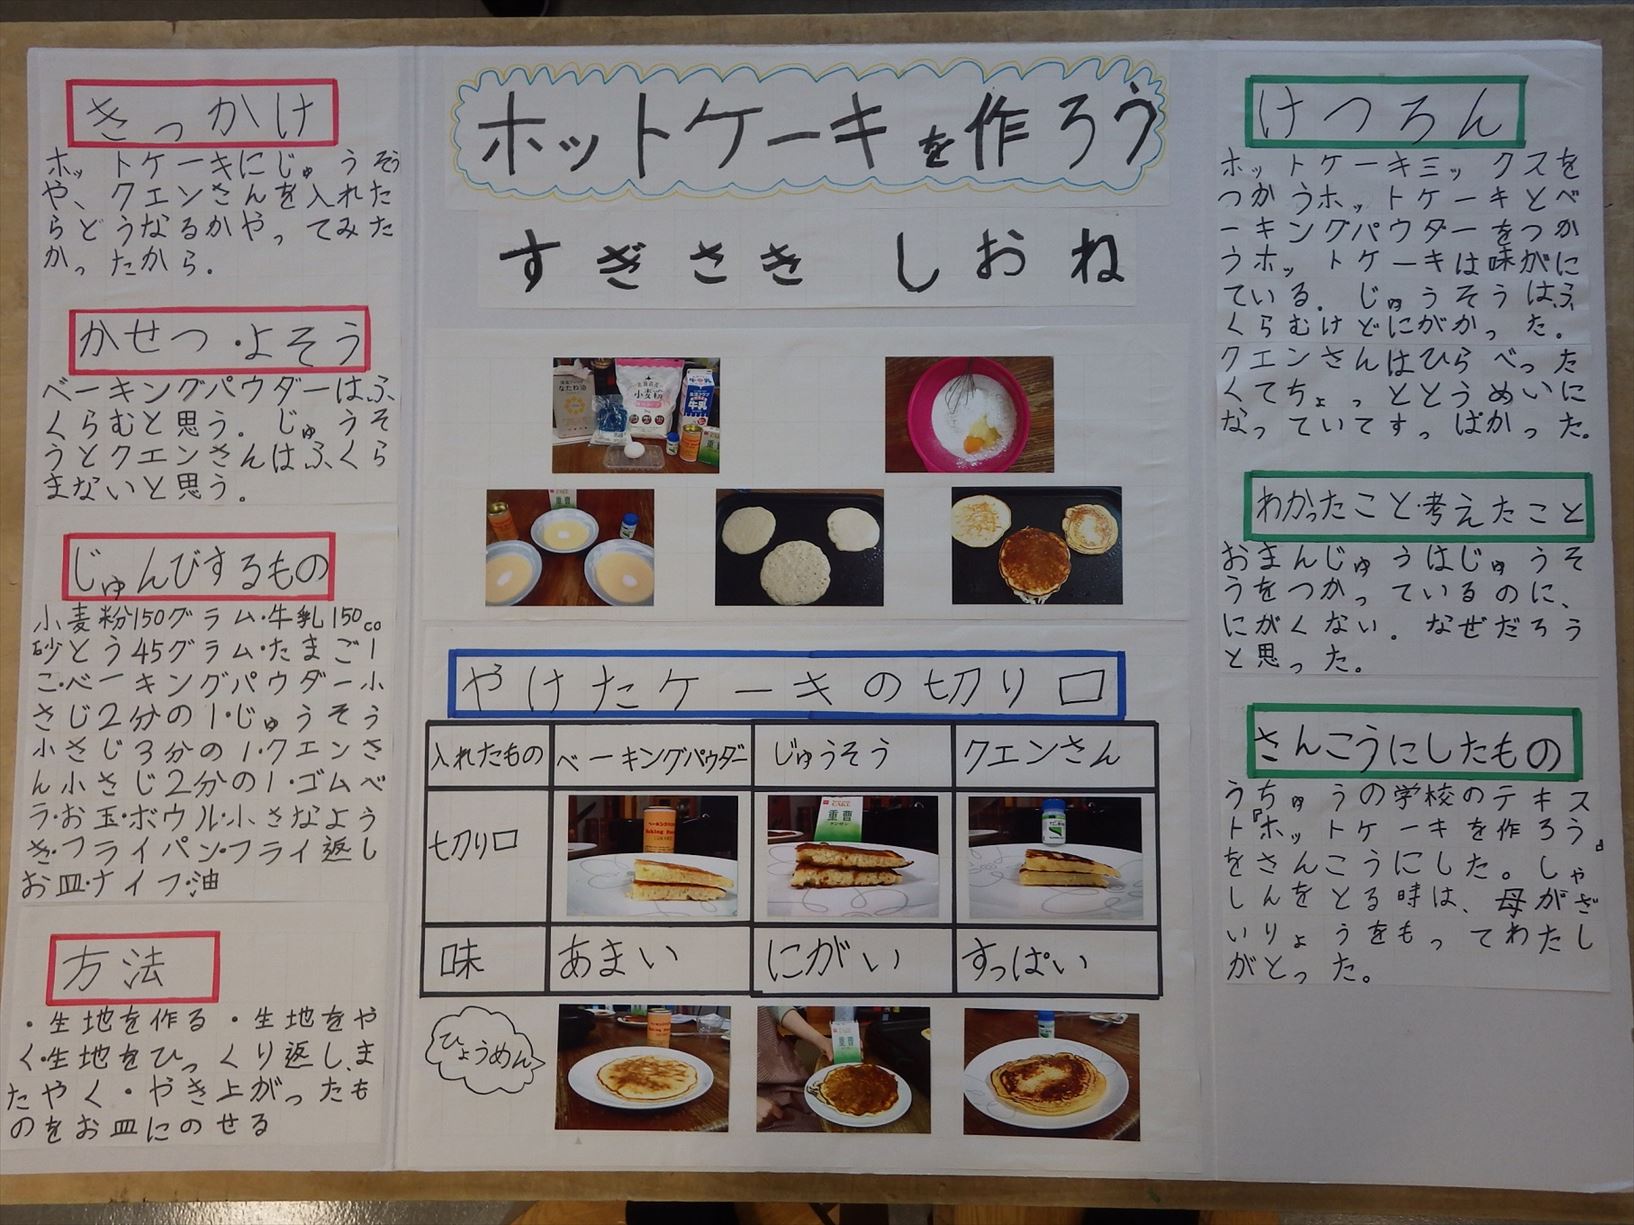 ホットケーキを作ろう
すぎさき しおね
きっかけ
ホットケーキにじゅうそう
や、クエンさんを入れた
らどうなるかやってみた
かったから.
かせつ・よそう
ベーキングパウダーはふ
くらむと思う.じゅうそ
うとクエンさんはふくら
まないと思う。
じゅんびするもの
小麦粉150グラム・牛乳150cc
砂とう45グラム・たまご1
こ・ベーキングパウダー小
さじ2分の1・じゅうそう
小さじ3分の1・クエンさ
ん小さじ2分の1・ゴムベ
ラ・お玉・ボウル・小さなよう
き・フライパン・フライ返し
お皿・ナイフ・油
方法
・生地を作る・生地をや
く・生地をひっくり返し、ま
たやく・やき上がったも
のをお皿にのせる
やけたケーキの切り口
入れたもの ベーキングパウダー じゅうそう クエンさん
切り口
重曹
味 あまい にがい すっぱい
ひょうめん
けつろん
ホットケーキミックスを
つかうホットケーキとベ
ーキングパウダーをつか
うホットケーキは味がに
ている.じゅうそうはふ
くらむけどにがかった。
クエンさんはひらべった
くてちょっととうめいに
なっていてすっぱかった。
わかったこと・考えたこと
おまんじゅうはじゅうそ
うをつかっているのに、
にがくない.なぜだろう
と思った。
さんこうにしたもの
うちゅうの学校のテキス
ト『ホットケーキを作ろう』
をさんこうにした。しゃ
しんをとる時は、母がざ
いりょうをもってわたし
がとった。